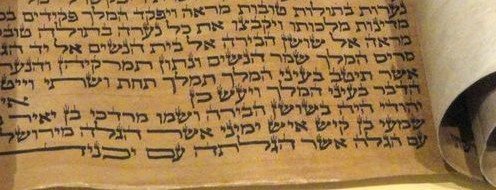 נערות בתולות טובות מראה ויפקד המלך פקידים
מדינות מלכותו ויקבצו את כל נערה בתולה טובת
מראה אל שושן הבירה אל בית הנשים אל יד
סריס המלך שמר הנשים ונתון תמרקיהן
אשר תיטב בעיני המלך תמלך תחת ושתי
הדבר בעיני המלך ויעש כן
יהודי היה בשושן הבירה ושמו מרדכי בן יאיר
שמעי בן קיש איש ימיני אשר הגלה
עם הגלה אשר הגלתה עם יכניה